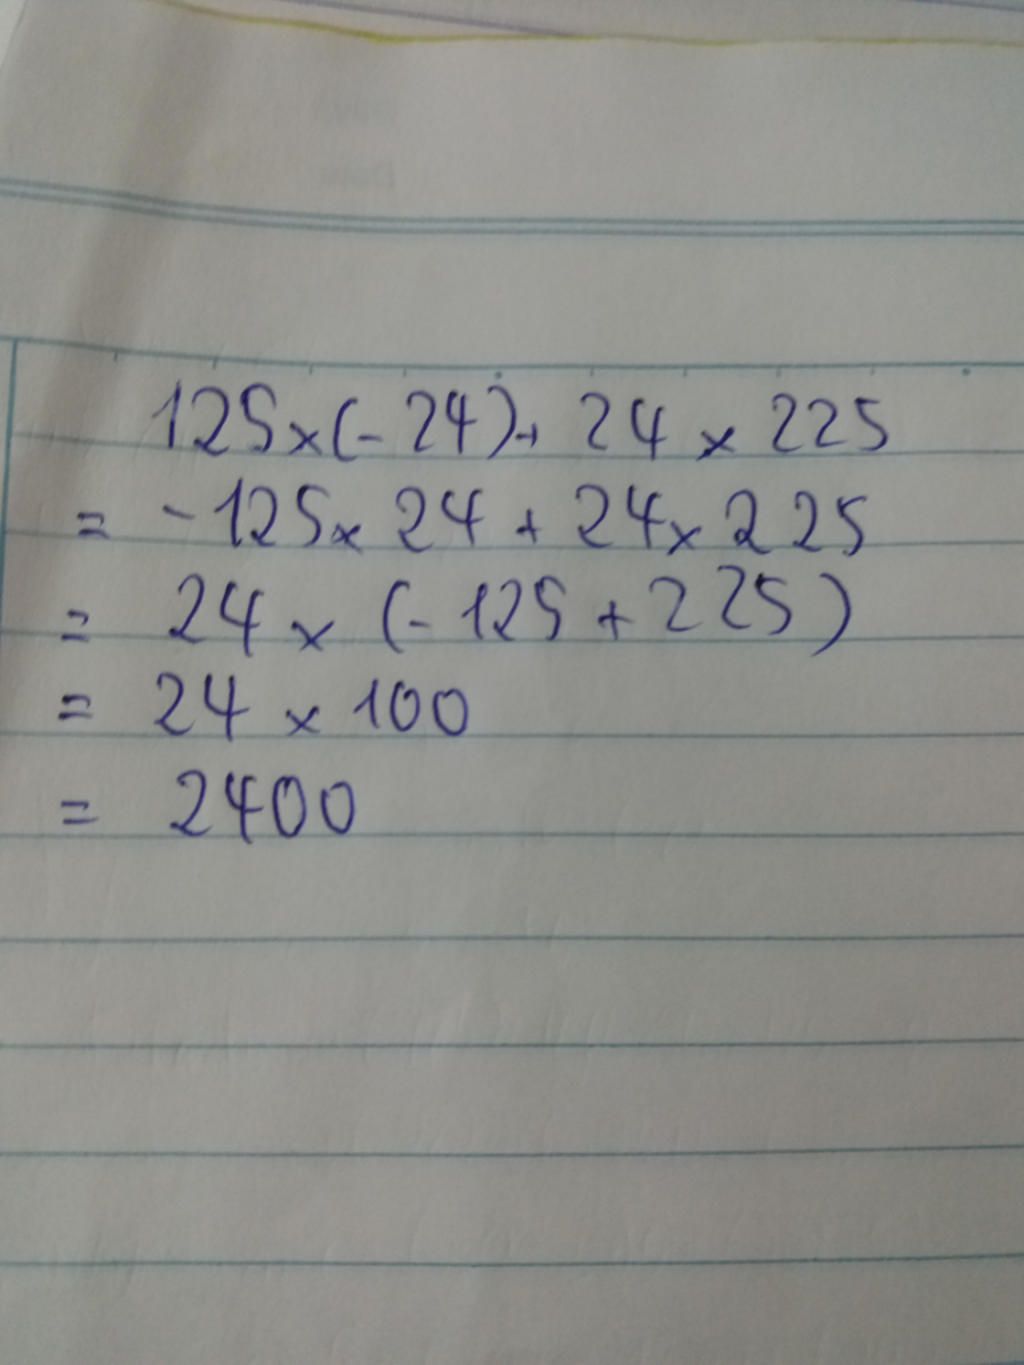 125x(-24)+ 24 x 225
= -125x 24 + 24x 225
= 24 x (-125 + 225)
= 24 x 100
= 2400